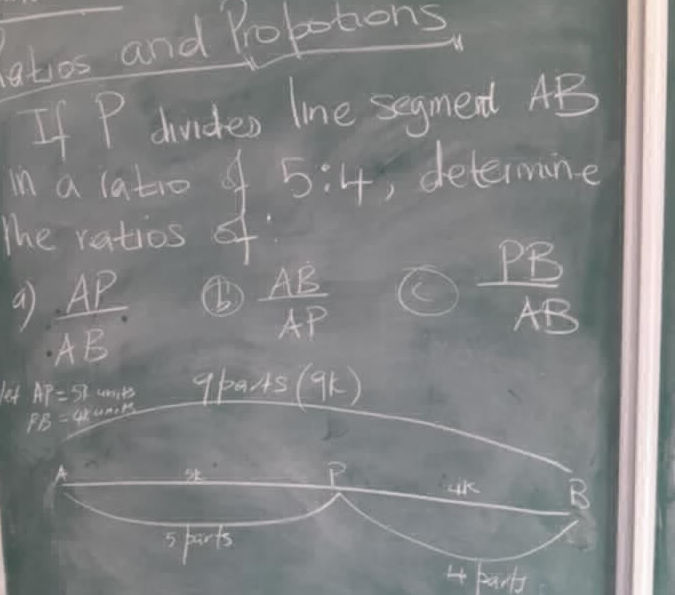 Ratios and Propotions
If P divides line segment AB
in a ratio of 5:4, determine
the ratios of:
a) AP/AB (b) AB/AP (c) PB/AB
let AP = 5k units
PB = 4k units
9 parts (9k)
A 5k P 4k B
5 parts
4 parts